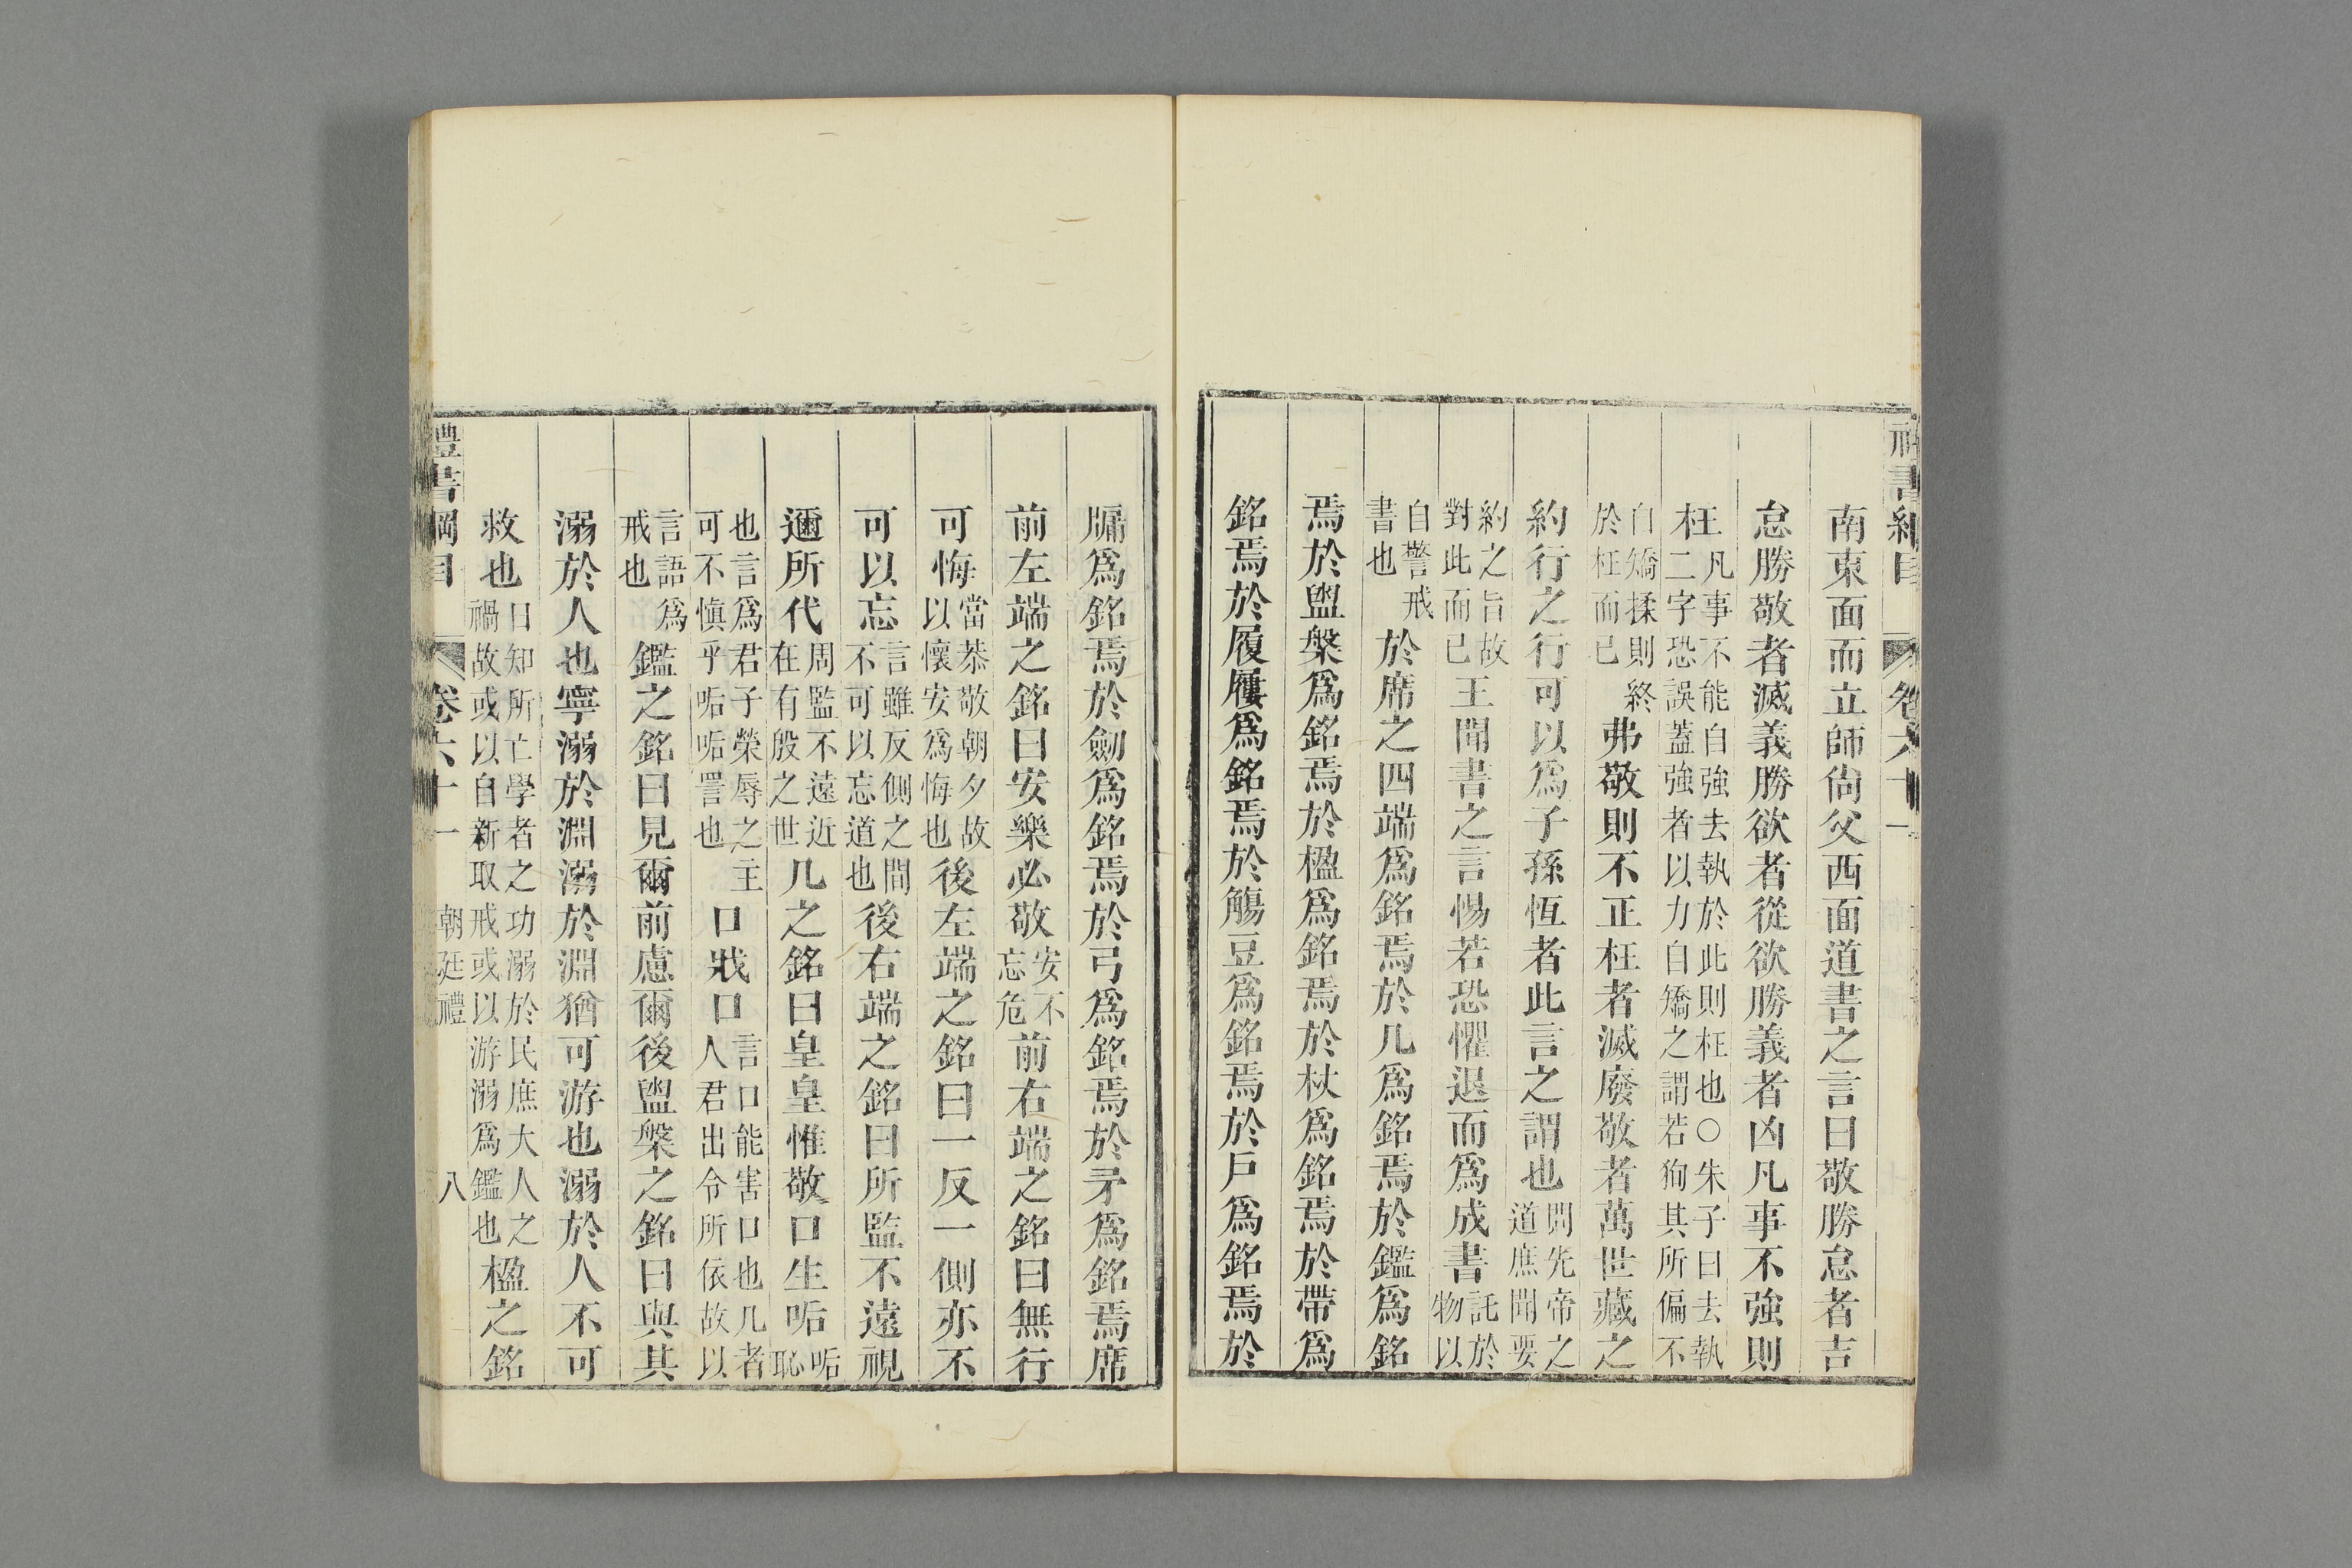 禮書綱目 卷六十一
南東面而立師尙父西面道書之言曰敬勝怠者吉
怠勝敬者滅義勝欲者從欲勝義者凶凡事不強則
枉凡事不能自強去執於此則枉也○朱子曰去執二字恐誤蓋強者以力自矯之謂若狥其所偏不
自矯揉則終於枉而已弗敬則不正枉者滅廢敬者萬世藏之
約行之行可以爲子孫恆者此言之謂也問先帝之道庶聞要
約之旨故對此而已王聞書之言惕若恐懼退而爲成書託於物以
自警戒書也於席之四端爲銘焉於几爲銘焉於鑑爲銘
焉於盥槃爲銘焉於楹爲銘焉於杖爲銘焉於帶爲
銘焉於履屨爲銘焉於觴豆爲銘焉於戶爲銘焉於
牖爲銘焉於劒爲銘焉於弓爲銘焉於矛爲銘焉席
前左端之銘曰安樂必敬安不忘危前右端之銘曰無行
可悔當恭敬朝夕故以懷安爲悔也後左端之銘曰一反一側亦不
可以忘言雖反側之間不可以忘道也後右端之銘曰所監不遠視
邇所代周監不遠近在有殷之世几之銘曰皇皇惟敬口生㖃㖃恥
也言爲君子榮辱之主可不愼乎㖃㖃詈也口戕口言口能害口也几者人君出令所依故以
言語爲戒也鑑之銘曰見爾前慮爾後盥槃之銘曰與其
溺於人也寧溺於淵溺於淵猶可游也溺於人不可
救也日知所亡學者之功溺於民庶大人之禍故或以自新取戒或以游溺爲鑑也楹之銘
禮書綱目 卷六十一 朝廷禮 八